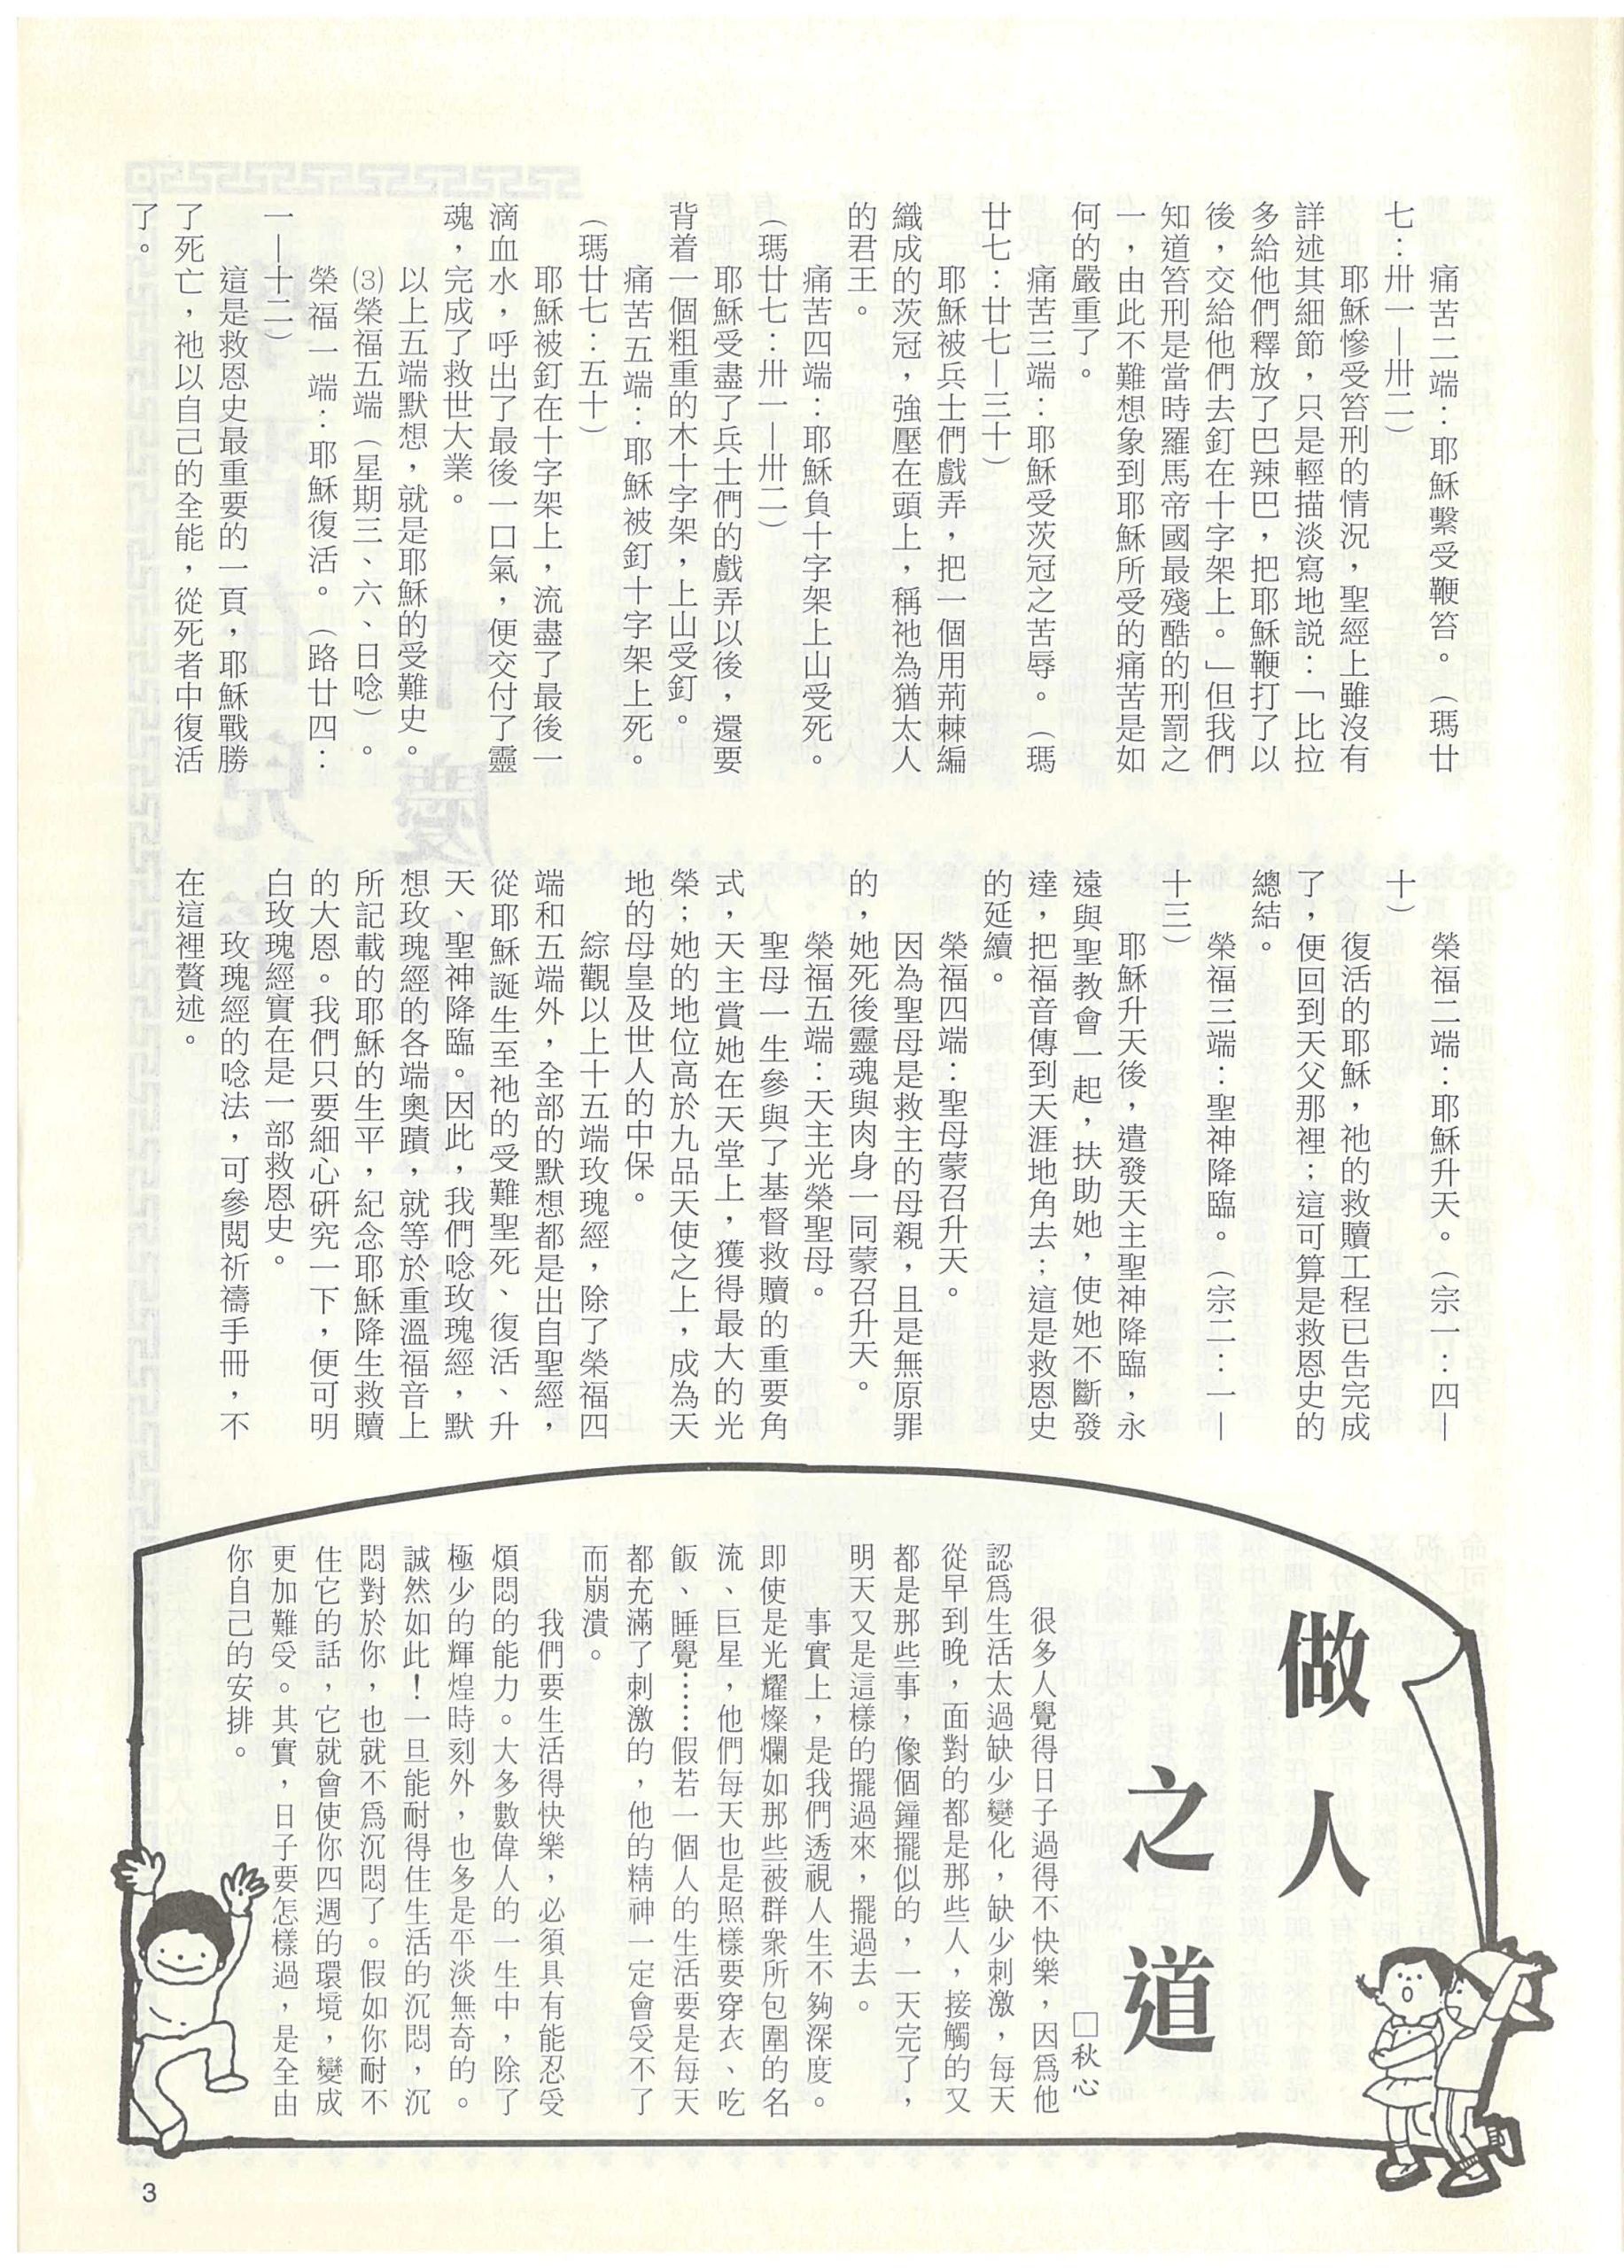 痛苦二端：耶穌繫受鞭笞。（瑪廿
七：卅一—卅二）
耶穌慘受笞刑的情況，聖經上雖沒有
詳述其細節，只是輕描淡寫地説：「比拉
多給他們釋放了巴辣巴，把耶穌鞭打了以
後，交給他們去釘在十字架上。」但我們
知道笞刑是當時羅馬帝國最殘酷的刑罰之
一，由此不難想象到耶穌所受的痛苦是如
何的嚴重了。
痛苦三端：耶穌受茨冠之苦辱。（瑪
廿七：廿七—三十）
耶穌被兵士們戲弄，把一個用荊棘編
織成的茨冠，強壓在頭上，稱祂為猶太人
的君王。
痛苦四端：耶穌負十字架上山受死。
（瑪廿七：卅一—卅二）
耶穌受盡了兵士們的戲弄以後，還要
背着一個粗重的木十字架，上山受釘。
痛苦五端：耶穌被釘十字架上死。
（瑪廿七：五十）
耶穌被釘在十字架上，流盡了最後一
滴血水，呼出了最後一口氣，便交付了靈
魂，完成了救世大業。
以上五端默想，就是耶穌的受難史。
⑶榮福五端（星期三、六、日唸）。
榮福一端：耶穌復活。（路廿四：
一—十二）
這是救恩史最重要的一頁，耶穌戰勝
了死亡，祂以自己的全能，從死者中復活
了。
榮福二端：耶穌升天。（宗一：四—
十）
復活的耶穌，祂的救贖工程已告完成
了，便回到天父那裡；這可算是救恩史的
總結。
榮福三端：聖神降臨。（宗二：一—
十三）
耶穌升天後，遣發天主聖神降臨，永
遠與聖教會一起，扶助她，使她不斷發
達，把福音傳到天涯地角去；這是救恩史
的延續。
榮福四端：聖母蒙召升天。
因為聖母是救主的母親，且是無原罪
的，她死後靈魂與肉身一同蒙召升天。
榮福五端：天主光榮聖母。
聖母一生參與了基督救贖的重要角
式，天主賞她在天堂上，獲得最大的光
榮；她的地位高於九品天使之上，成為天
地的母皇及世人的中保。
綜觀以上十五端玫瑰經，除了榮福四
端和五端外，全部的默想都是出自聖經，
從耶穌誕生至祂的受難聖死、復活、升
天、聖神降臨。因此，我們唸玫瑰經，默
想玫瑰經的各端奧蹟，就等於重溫福音上
所記載的耶穌的生平，紀念耶穌降生救贖
的大恩。我們只要細心研究一下，便可明
白玫瑰經實在是一部救恩史。
玫瑰經的唸法，可參閱祈禱手冊，不
在這裡贅述。
做人
之道
□秋心
很多人覺得日子過得不快樂，因爲他
認爲生活太過缺少變化，缺少刺激，每天
從早到晚，面對的都是那些人，接觸的又
都是那些事，像個鐘擺似的，一天完了，
明天又是這樣的擺過來，擺過去。
事實上，是我們透視人生不夠深度。
即使是光耀燦爛如那些被群衆所包圍的名
流、巨星，他們每天也是照樣要穿衣、吃
飯、睡覺……假若一個人的生活要是每天
都充滿了刺激的，他的精神一定會受不了
而崩潰。
我們要生活得快樂，必須具有能忍受
煩悶的能力。大多數偉人的一生中，除了
極少的輝煌時刻外，也多是平淡無奇的。
誠然如此！一旦能耐得住生活的沉悶，沉
悶對於你，也就不爲沉悶了。假如你耐不
住它的話，它就會使你四週的環境，變成
更加難受。其實，日子要怎樣過，是全由
你自己的安排。
3